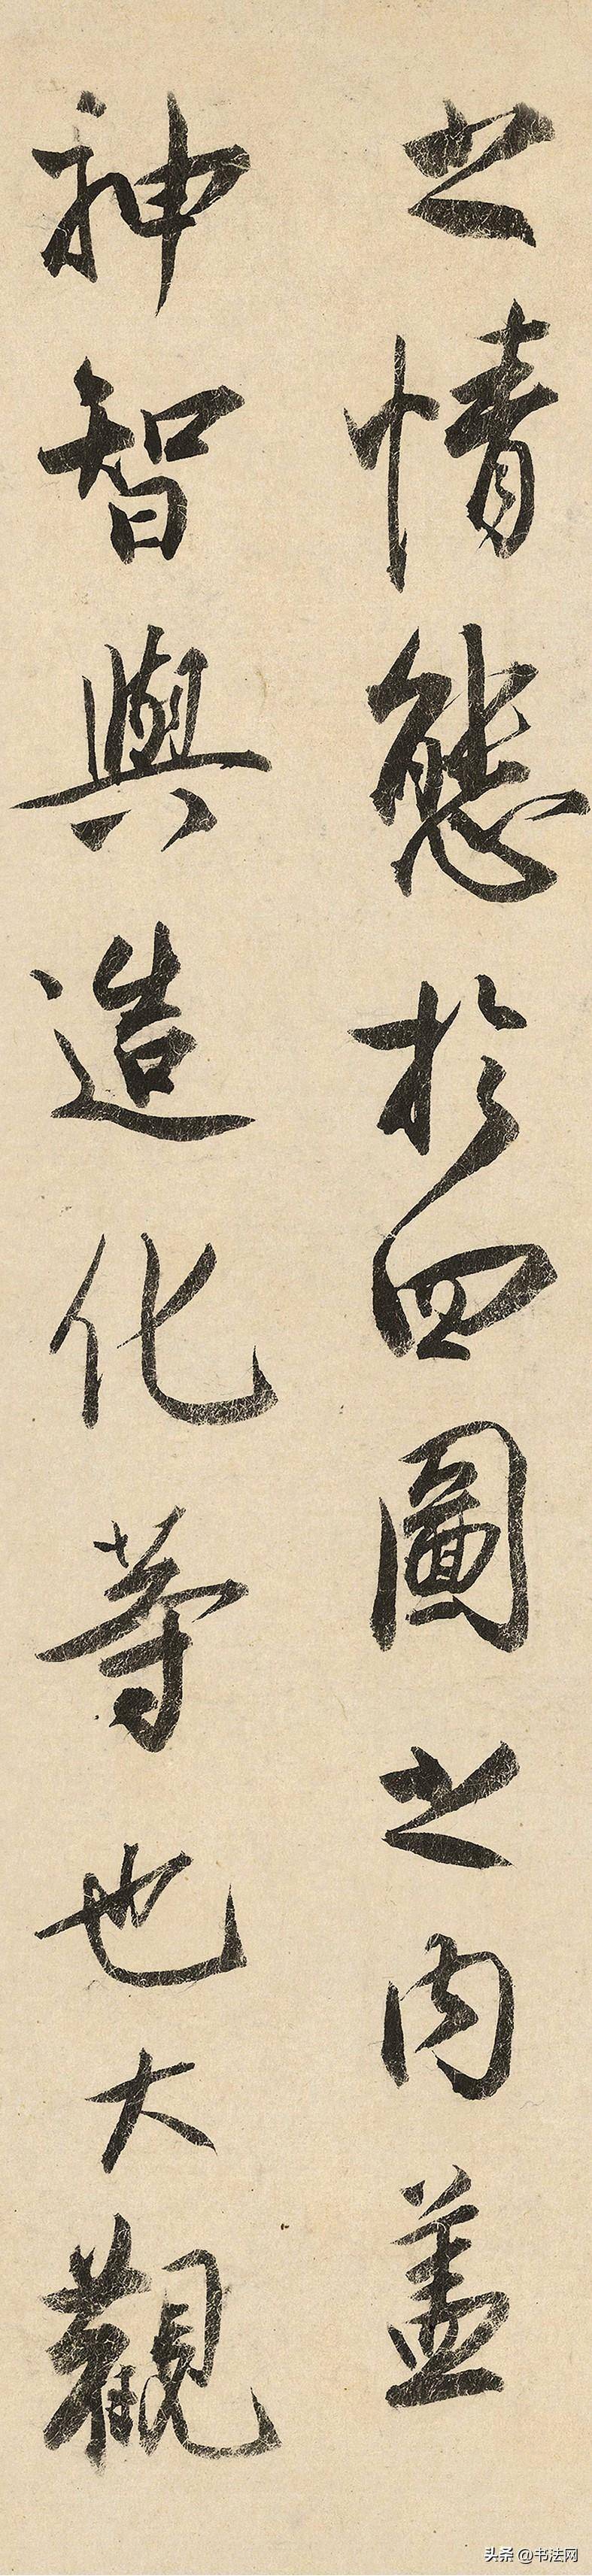 之情態於四圖之内盖
神智與造化等也大觀
头条 @书法网